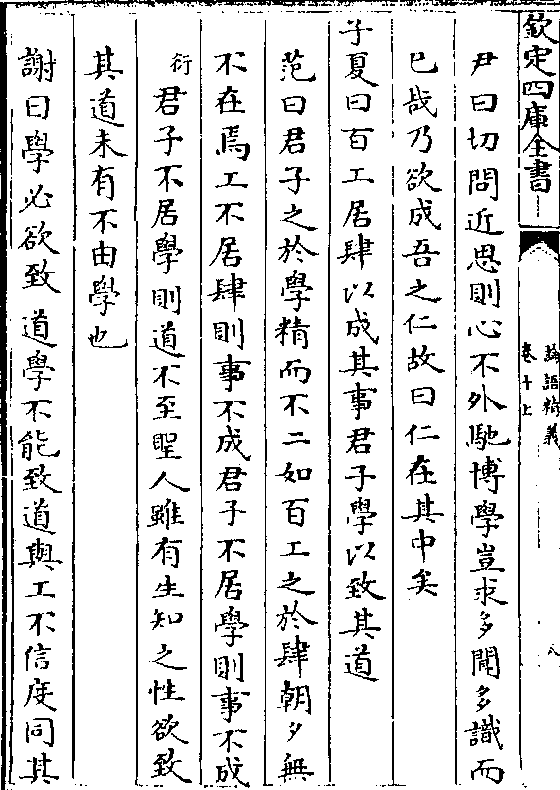 欽定四庫全書
論語精義
卷十上
八
尹曰切問近思則心不外馳博學豈求多聞多識而
已哉乃欲成吾之仁故曰仁在其中矣
子夏曰百工居肆以成其事君子學以致其道
范曰君子之於學精而不二如百工之於肆朝夕無
不在焉工不居肆則事不成君子不居學則事不成
衍君子不居學則道不至聖人雖有生知之性欲致
其道未有不由學也
謝曰學必欲致道學不能致道與工不信度同其